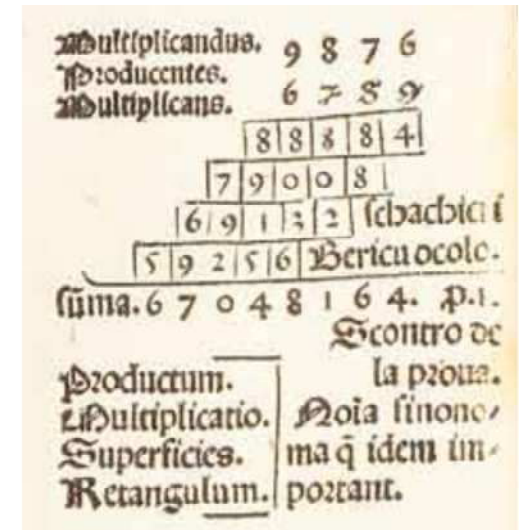 Multiplicandus. 9 8 7 6
Producentes.
Multiplicans. 6 7 8 9
8 8 8 8 4
7 9 0 0 8
6 9 1 3 2 schachieri
5 9 2 5 6 Bericuocolo.
sūma. 6 7 0 4 8 1 6 4. p. 1.
Scontro de
la proua.
Productum.
Multiplicatio. Noīa sinono-
Superficies. ma q̄ idem im-
Retangulum. portant.